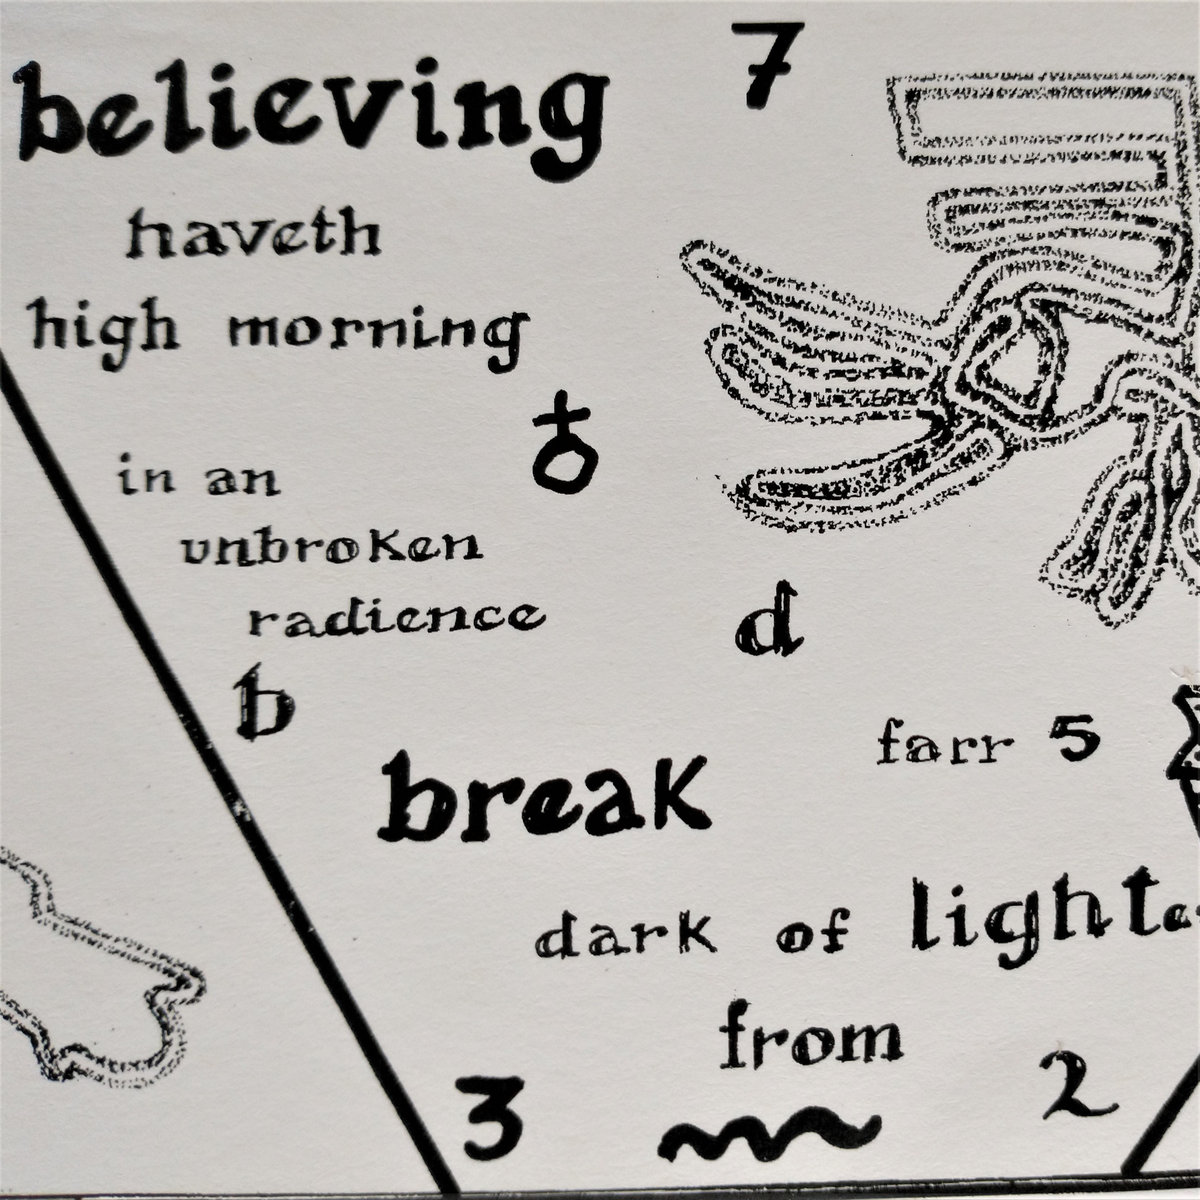 believing
7
haveth
high morning
♁
in an
unbroken
radience
d
b
farr 5
break
dark of lighte
from
3
2